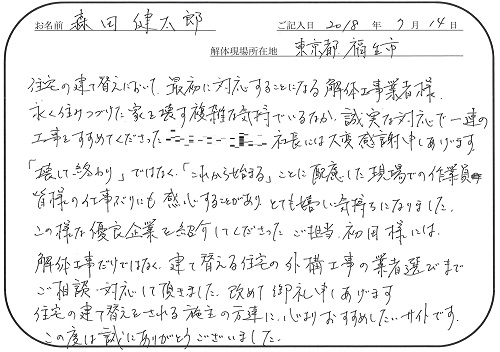 お名前 森田健太郎 ご記入日 2018 年 7 月 14 日
解体現場所在地 東京都 福生市
住宅の建て替えにおいて、最初に対応することになる解体工事業者様。
永く住みつづけた家を壊す複雑な気持でいるなか、誠実な対応で一連の
工事をすすめてくださった 社長には大変感謝申しあげます
「壊して終わり」ではなく、「これから始まる」ことに配慮した現場での作業員
皆様の仕事だりにも感心することがあり、とても嬉しい気持ちになりました。
この様な優良企業を紹介してくださった ご担当 初田様には、
解体工事だけではなく、建て替える住宅の外構工事の業者選びまで
ご相談・対応して頂きました。改めて御礼申しあげます
住宅の建て替えをされる施主の方達に、心よりおすすめしたいサイトです。
この度は誠にありがとうございました。